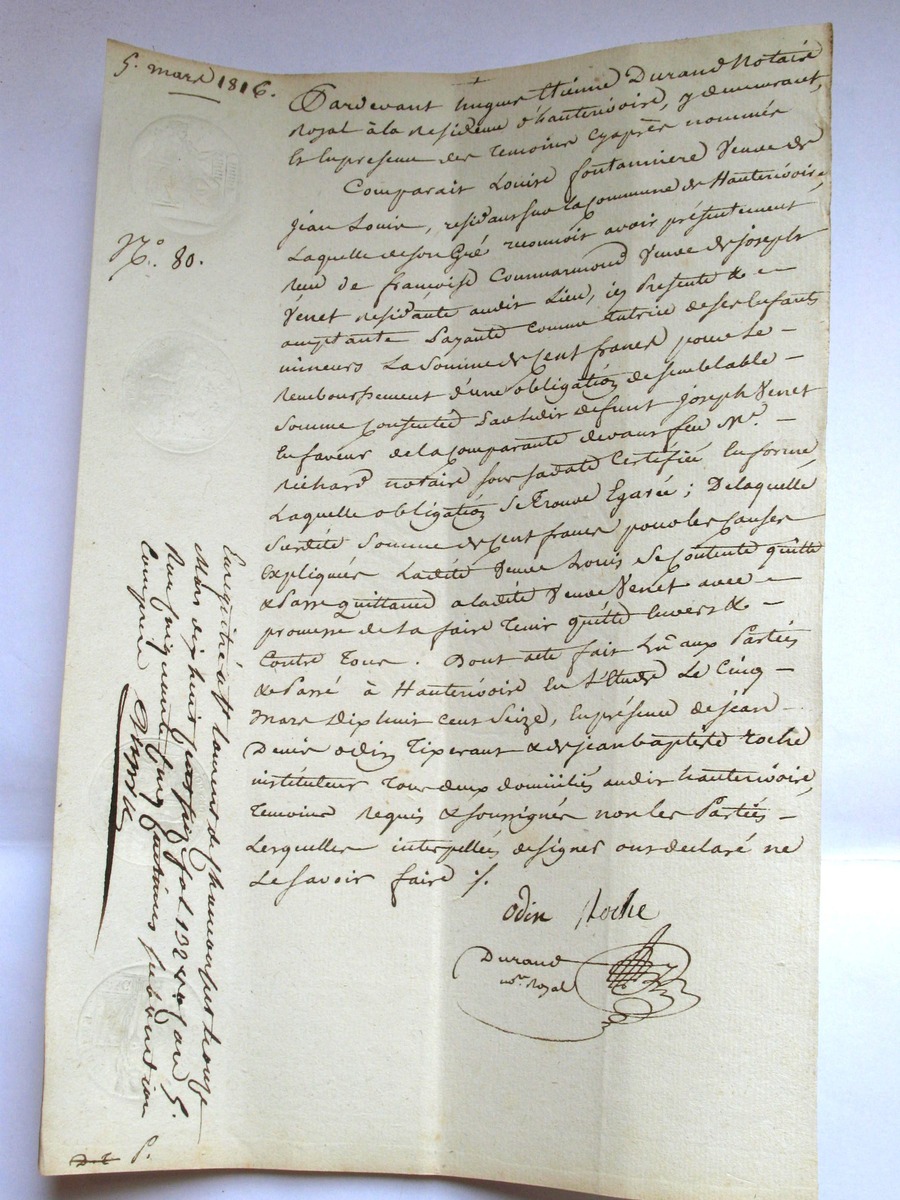 5. mars 1816.
N.° 80.
Pardevant hugues Etienne Durand Notaire
Royal à la Residence d'hauterivoire, y demeurant,
Et En presence des Temoins Cyaprès nommés
Comparait Louise fontanniere Veuve de
Jean Louis, residant sur la Commune de Hauterivoire,
Laquelle de son Gré reconnoit avoir présentement
Reçu de françoise Coummarmond Veuve de joseph
Venet Residante audit Lieu, icy Presente & a-
cceptante payante Comme tutrice de ses Enfants
mineurs La Somme de Cent francs pour Le -
Remboursement d'une obligation de semblable -
Somme Consentie par ledit defunt joseph Venet
En faveur de la Comparante devant feu M.e -
Richard notaire sous sa date Certifiée En forme
Laquelle obligation se Trouve Egarée ; De laquelle
Susdite Somme de Cent francs pour les Causes
Expliquées Ladite Veuve Louis se Contente quitte
& Passe quittance a ladite Veuve Venet avec -
promesse de La faire Tenir quitte Envers &
Contre Tous . Dont acte fait Lû aux Parties
& Passé à Hauterivoire En L'Etude Le Cinq -
Mars Dix huit Cent Seize, En présence de jean
Denis odin Tixerant & de jean baptiste roche
instituteur Tous deux domiciliés audit hauterivoire,
Temoins Requis & soussignés non les Parties -
Lesquelles interpellées de signer ont declaré ne
Le savoir faire ./.
Odin Roche
Durand
n.re Royal
Enregistré à St Laurent de Chamousset le onze
Mars dix huit cent seize fol 132 V.o C.au 5.
Reçu cinquante cinq centimes subvention
Comprise
P.